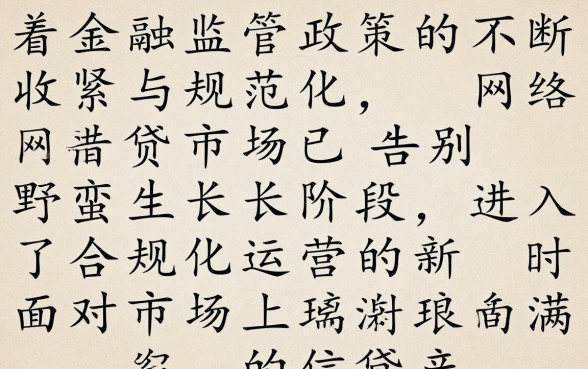 着金融监管政策的不断
收紧与规范化， 网络
网借贷市场已 告别
野蛮生长长阶段，进入
了合规化运营的新 时
面对市场上璃 琅 满
的信贷产